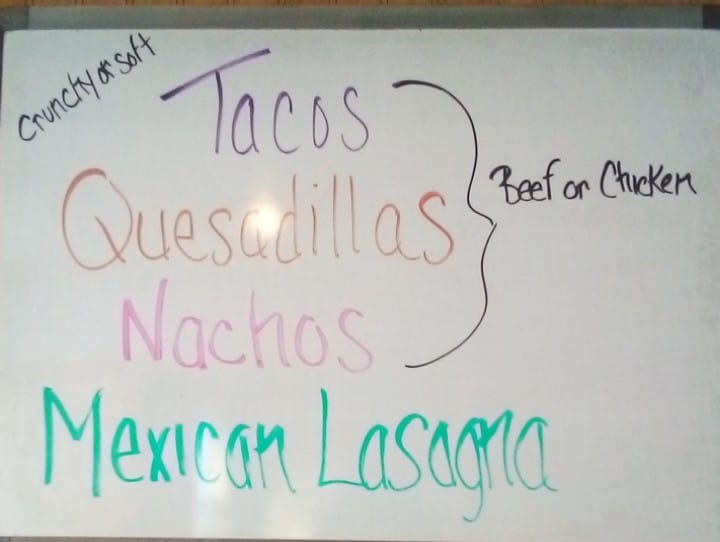 Crunchy or soft
Tacos
Quesadillas
Beef or Chicken
Nachos
Mexican Lasagna